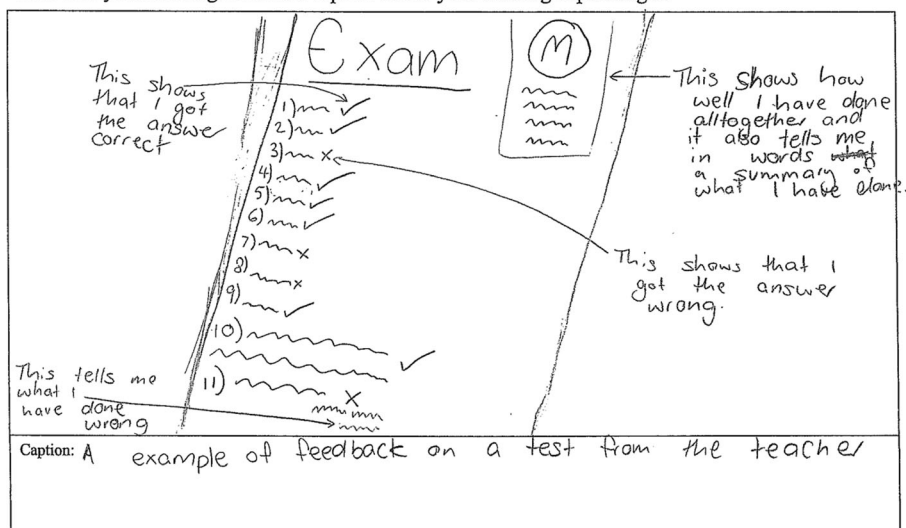 Exam
M
This shows
that I got
the answer
correct
1) ✓
2) ✓
3) x
4) ✓
5) ✓
6) ✓
7) x
8) x
9) ✓
10) ✓
11) x
This shows how
well I have done
alltogether and
it also tells me
in words what
a summary of
what I have done.
This shows that I
got the answer
wrong.
This tells me
what I
have done
wrong
Caption: A example of feedback on a test from the teacher